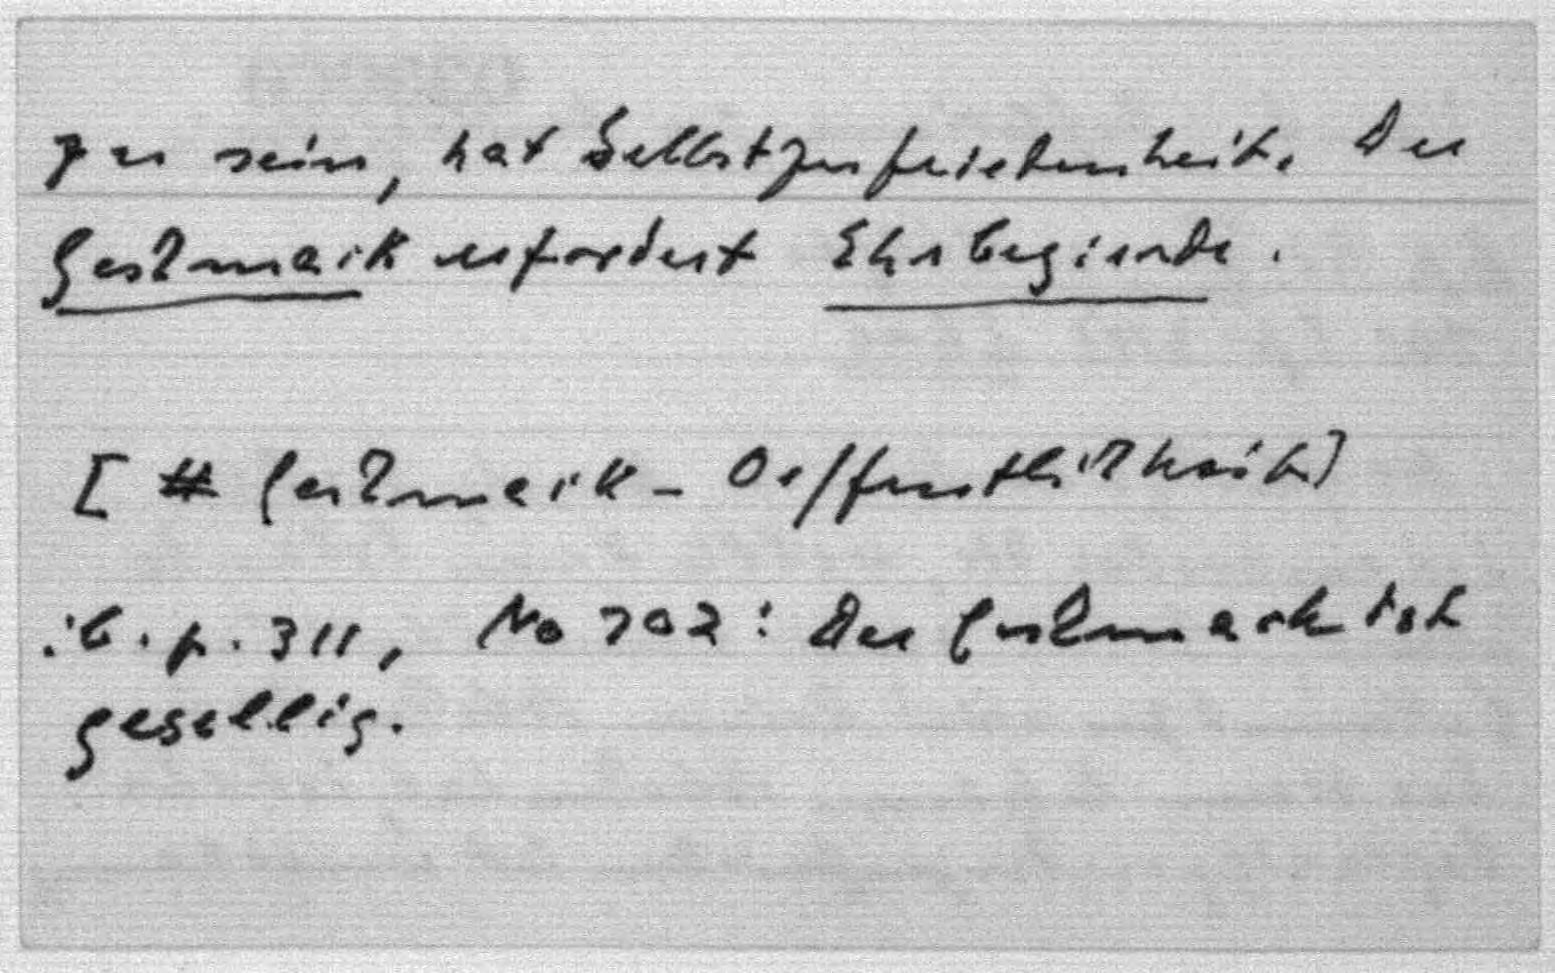 zu sein, hat Selbstzufriedenheit. Der
Geschmack erfordert Ehrbegierde.
[ # Geschmack – Oeffentlichkeit]
ib. p. 311, No 702: Der Geschmack ist
gesellig.